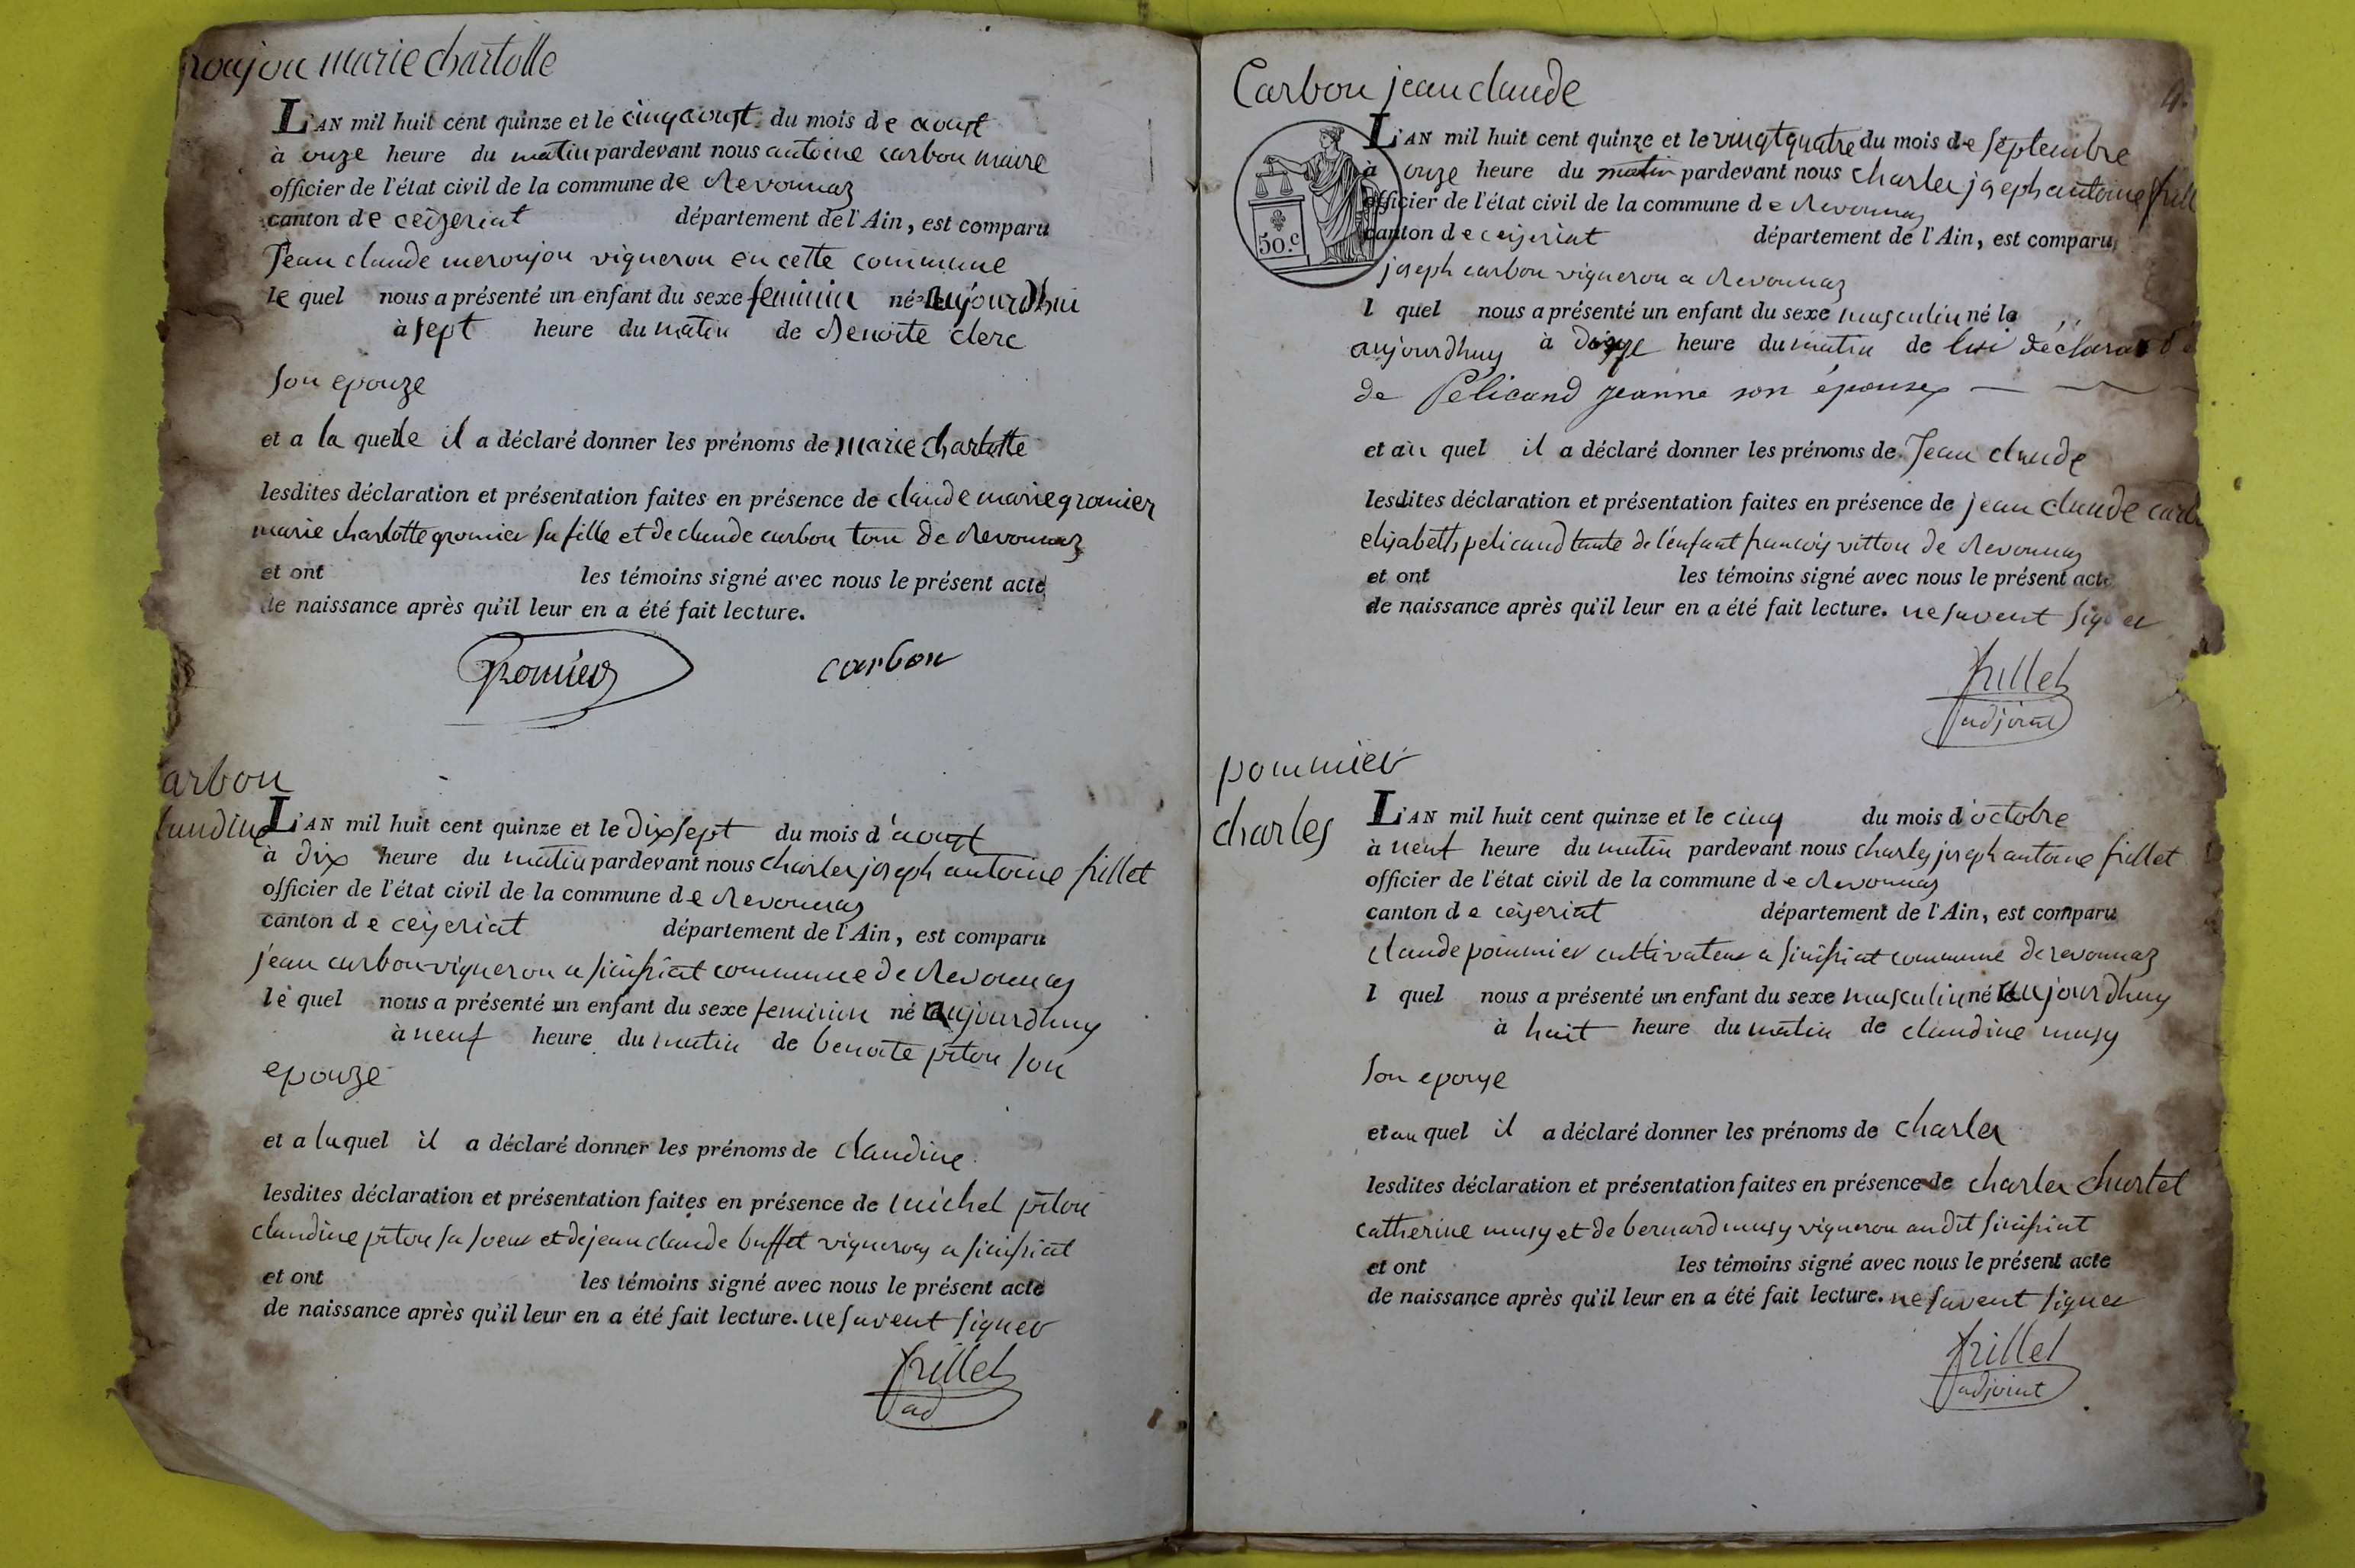 roujou marie charlotte
L'AN mil huit cent quinze et le cinq aoust du mois de aoust
à onze heure du matin pardevant nous antoine carbon maire
officier de l'état civil de la commune de Revonnaz
canton de ceizeriat département de l'Ain, est comparu
Jean claude meroujou vigneron en cette commune
le quel nous a présenté un enfant du sexe feminin né aujourdhui
à sept heure du matin de Benoite clerc
son epouze
et a la quelle il a déclaré donner les prénoms de marie charlotte
lesdites déclaration et présentation faites en présence de claude marie gromier
marie charlotte gromier sa fille et de claude carbon tous de Revonnaz
et ont les témoins signé avec nous le présent acte
de naissance après qu'il leur en a été fait lecture.
Gromier carbon
arbon
laudine
L'AN mil huit cent quinze et le dix sept du mois d'aoust
à dix heure du matin pardevant nous charles joseph antoine frillet
officier de l'état civil de la commune de Revonnas
canton de ceyzeriat département de l'Ain, est comparu
jean carbon vigneron a sinssiat commune de Revonnas
le quel nous a présenté un enfant du sexe feminin né aujourdhuy
à neuf heure du matin de benoite piton son
epouze
et a la quel il a déclaré donner les prénoms de claudine
lesdites déclaration et présentation faites en présence de michel piton
claudine piton sa soeur et de jean claude buffet vignerons a sinssiat
et ont les témoins signé avec nous le présent acte
de naissance après qu'il leur en a été fait lecture. ne savent signer
frillet
ad
Carbon jean claude
4.
L'AN mil huit cent quinze et le vingt quatre du mois de septembre
à onze heure du matin pardevant nous charles joseph antoine frill
officier de l'état civil de la commune de Revonnas
canton de ceyzeriat département de l'Ain, est comparu
50.c
joseph carbon vigneron a Revonnaz
l quel nous a présenté un enfant du sexe masculin né le
aujourdhuy à heure du matin de lui déclarant
de Pélicand jeanne son épouse
et au quel il a déclaré donner les prénoms de Jean claude
lesdites déclaration et présentation faites en présence de jean claude carb
elisabeth pelicand tante de l'enfant francois vitton de Revonnas
et ont les témoins signé avec nous le présent acte
de naissance après qu'il leur en a été fait lecture. ne savent signer
frillet
adjoint
pommier
charles
L'AN mil huit cent quinze et le cinq du mois d'octobre
à neuf heure du matin pardevant nous charles joseph antoine frillet
officier de l'état civil de la commune de Revonnas
canton de ceyzeriat département de l'Ain, est comparu
claude pommier cultivateur a sinssiat commune de revonnaz
l quel nous a présenté un enfant du sexe masculin né aujourdhuy
à huit heure du matin de claudine musy
son epouze
et au quel il a déclaré donner les prénoms de charles
lesdites déclaration et présentation faites en présence de charles churlet
catherine musy et de bernard musy vigneron audit sinssiat
et ont les témoins signé avec nous le présent acte
de naissance après qu'il leur en a été fait lecture. ne savent signer
frillet
adjoint